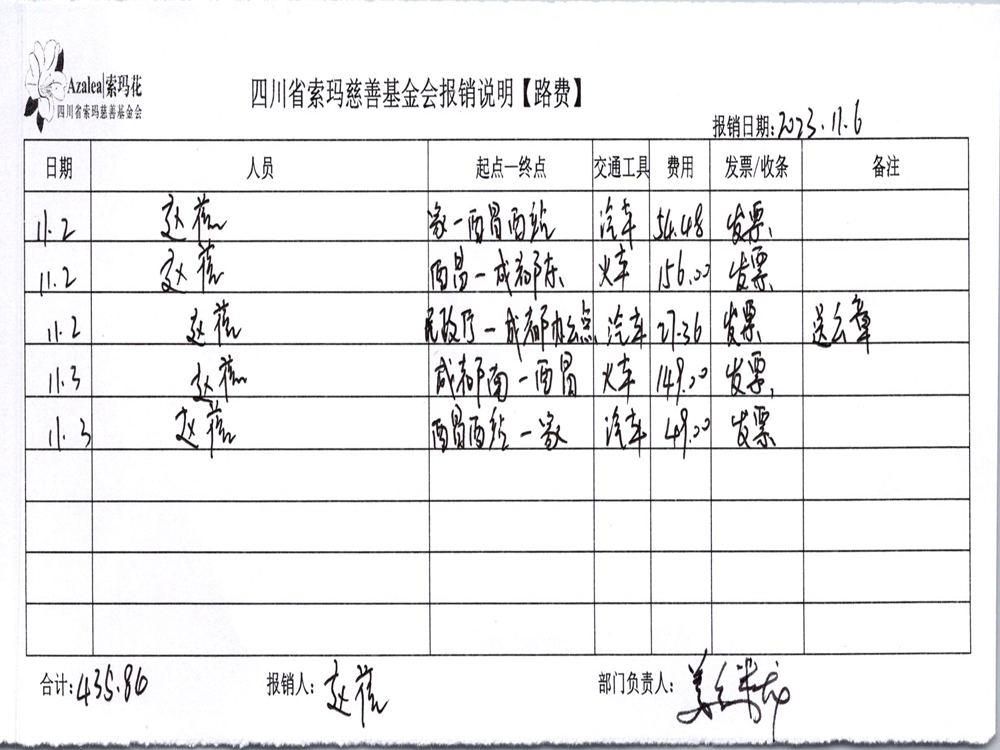 Azalea|索玛花
四川省索玛慈善基金会
四川省索玛慈善基金会报销说明【路费】
报销日期:2023.11.6
日期 人员 起点—终点 交通工具 费用 发票/收条 备注
11.2 赵蓓 家—西昌西站 汽车 54.48 发票
11.2 赵蓓 西昌—成都东 火车 156.00 发票
11.2 赵蓓 民政厅—成都办公点 汽车 27.36 发票 送公章
11.3 赵蓓 成都南—西昌 火车 149.00 发票
11.3 赵蓓 西昌西站—家 汽车 49.00 发票
合计:435.80 报销人:赵蓓 部门负责人: